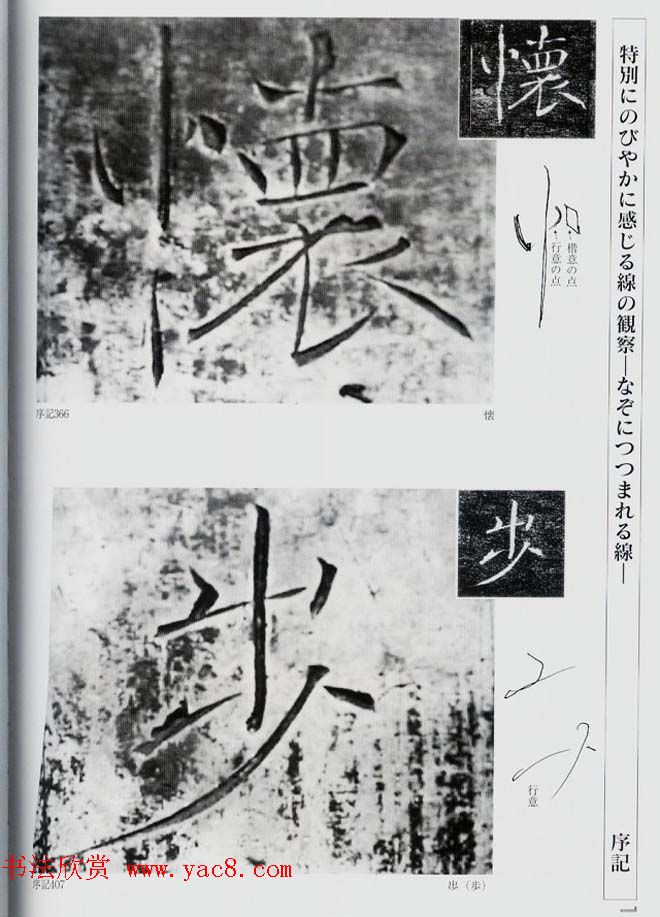 特別にのびやかに感じる線の観察―なぞにつつまれる線―
序記
懐
懐
楷意の点
行意の点
序記366
懐
歩
歩
行意
序記407
歨（歩）
书法欣赏 www.yac8.com